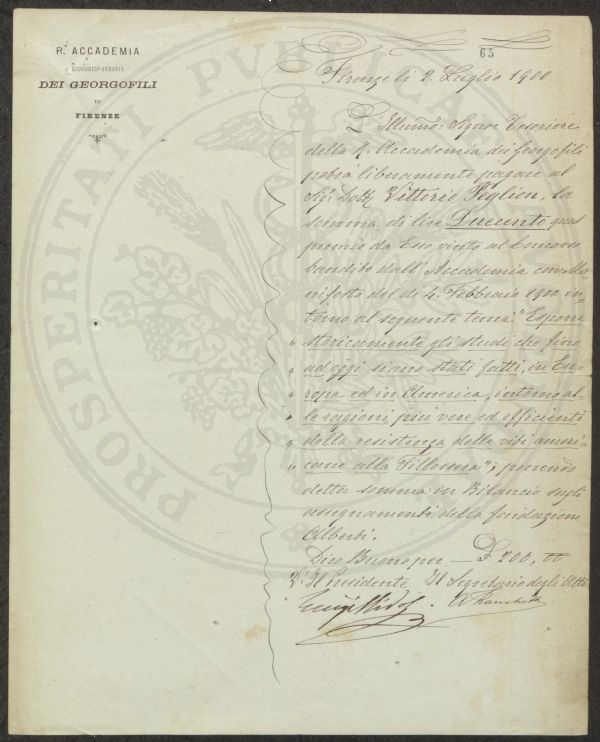 R. ACCADEMIA
ECONOMICO-AGRARIA
DEI GEORGOFILI
DI
FIRENZE
65
Firenze li 2. Luglio 1900
L'Illumo: Signor Tesoriere
della R. Accademia dei Georgofili
potrà liberamente pagare al
Sigr Dottr Vittorio Peglion, la
somma di lire Duecento qual
premio da Esso vinto al Concorso
bandito dall'Accademia con Ma-
nifesto del dì 4. Febbraio 1900 in-
torno al seguente tema: "Esporre
" storicamente gli studi che fino
" ad oggi siano stati fatti, in Eu-
" ropa ed in America, intorno al-
" le ragioni più vere ed efficienti
" della resistenza delle viti ameri-
" cane alla Fillossera"; ponendo
detta somma in Bilancio sugli
assegnamenti della fondazione
Alberti.
Dico Buono per — £ 200,
V. Il Presidente Il Segretario degli Atti
Luigi
PROSPERITATI PUBLICAE